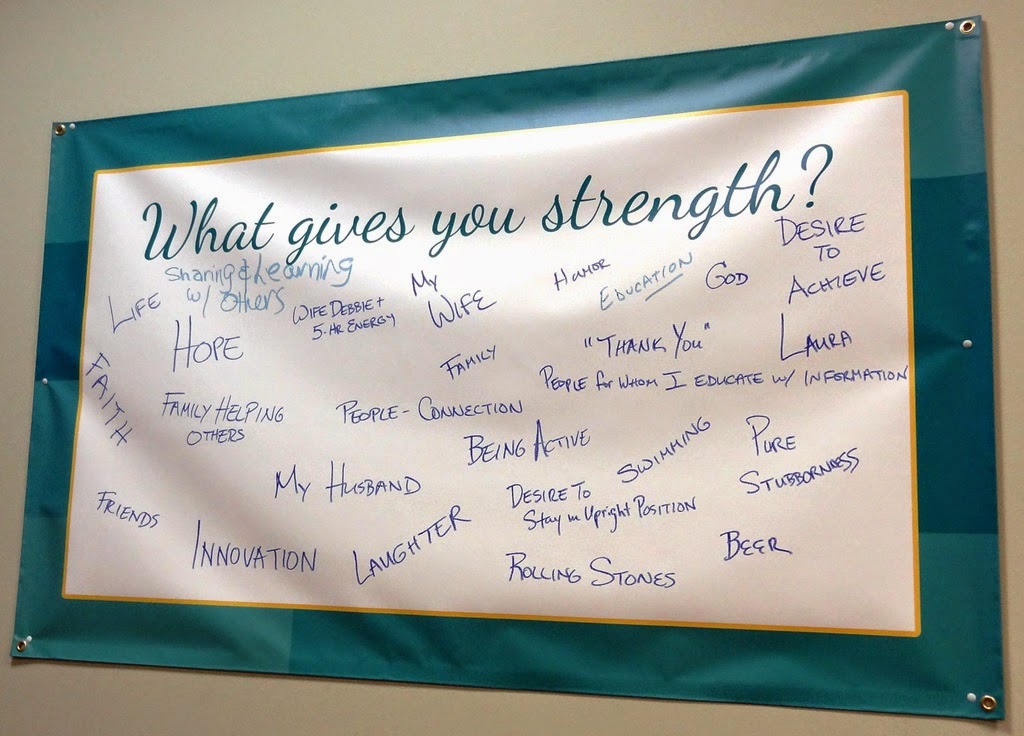 What gives you strength?
Sharing & Learning
w/ Others
LIFE
WIFE DEBBIE +
5-HR ENERGY
MY
WIFE
HUMOR
EDUCATION
GOD
DESIRE
TO
ACHIEVE
HOPE
FAMILY
"THANK YOU"
LAURA
FAITH
PEOPLE for WHOM I EDUCATE w/ INFORMATION
FAMILY HELPING
OTHERS
PEOPLE - CONNECTION
BEING ACTIVE
SWIMMING
PURE
STUBBORNNESS
MY HUSBAND
DESIRE TO
Stay in Upright POSITION
FRIENDS
INNOVATION
LAUGHTER
ROLLING STONES
BEER